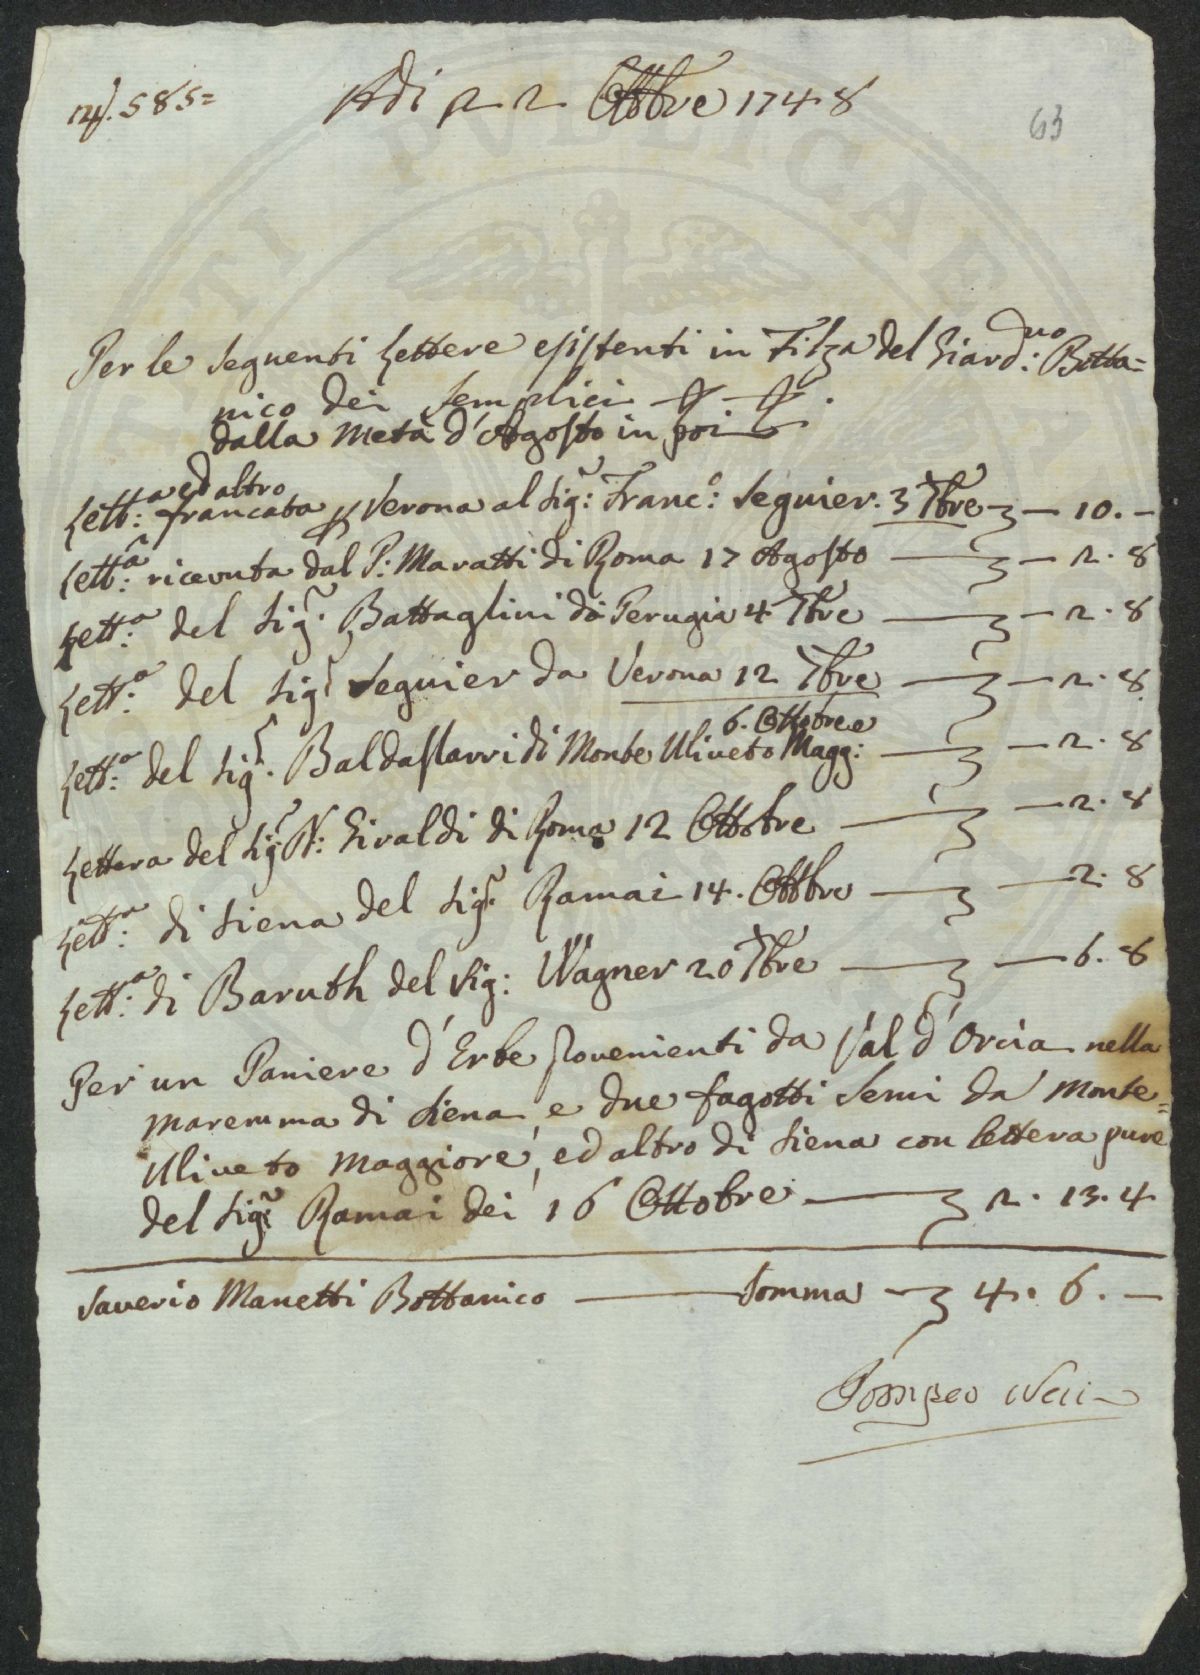 N. 585=
Adi 22 Ottbre 1748
63
Per le seguenti Lettere esistenti in Filza del Giard:no Botta=
nico dei Semplici
dalla Metà d'Agosto in poi
Lett:a ed altro francata p Verona al Sig:r Franc:o Seguier. 3 7bre — 10. —
Lett:a ricevuta dal P: Maratti di Roma 17 Agosto — 2. 8
Lett:a del Sig.r Battaglini da Perugia 4 7bre — 2. 8
Lett:a del Sig.r Seguier da Verona 12 7bre — 2. 8
6. Ottobre
Lett:a del Sig.r Baldaslarri di Monte Uliveto Magg: — 2. 8
Lettera del Sig.r N: Giraldi di Roma 12 Ottobre — 2. 8
Lett:a di Siena del Sig.r Ramai 14. Ottbre — 2. 8
Lett:a di Baruth del Sig: Wagner 20 7bre — 6. 8
Per un Paniere d'Erbe provenienti da Val d'Orcia nella
Maremma di Siena, e due fagotti Semi da Monte=
Uliveto Maggiore, ed altro di Siena con lettera pure
del Sig.r Ramai dei 16 Ottobre — 2. 13. 4
Saverio Manetti Bottanico — Somma — 4. 6. —
Pompeo Neri